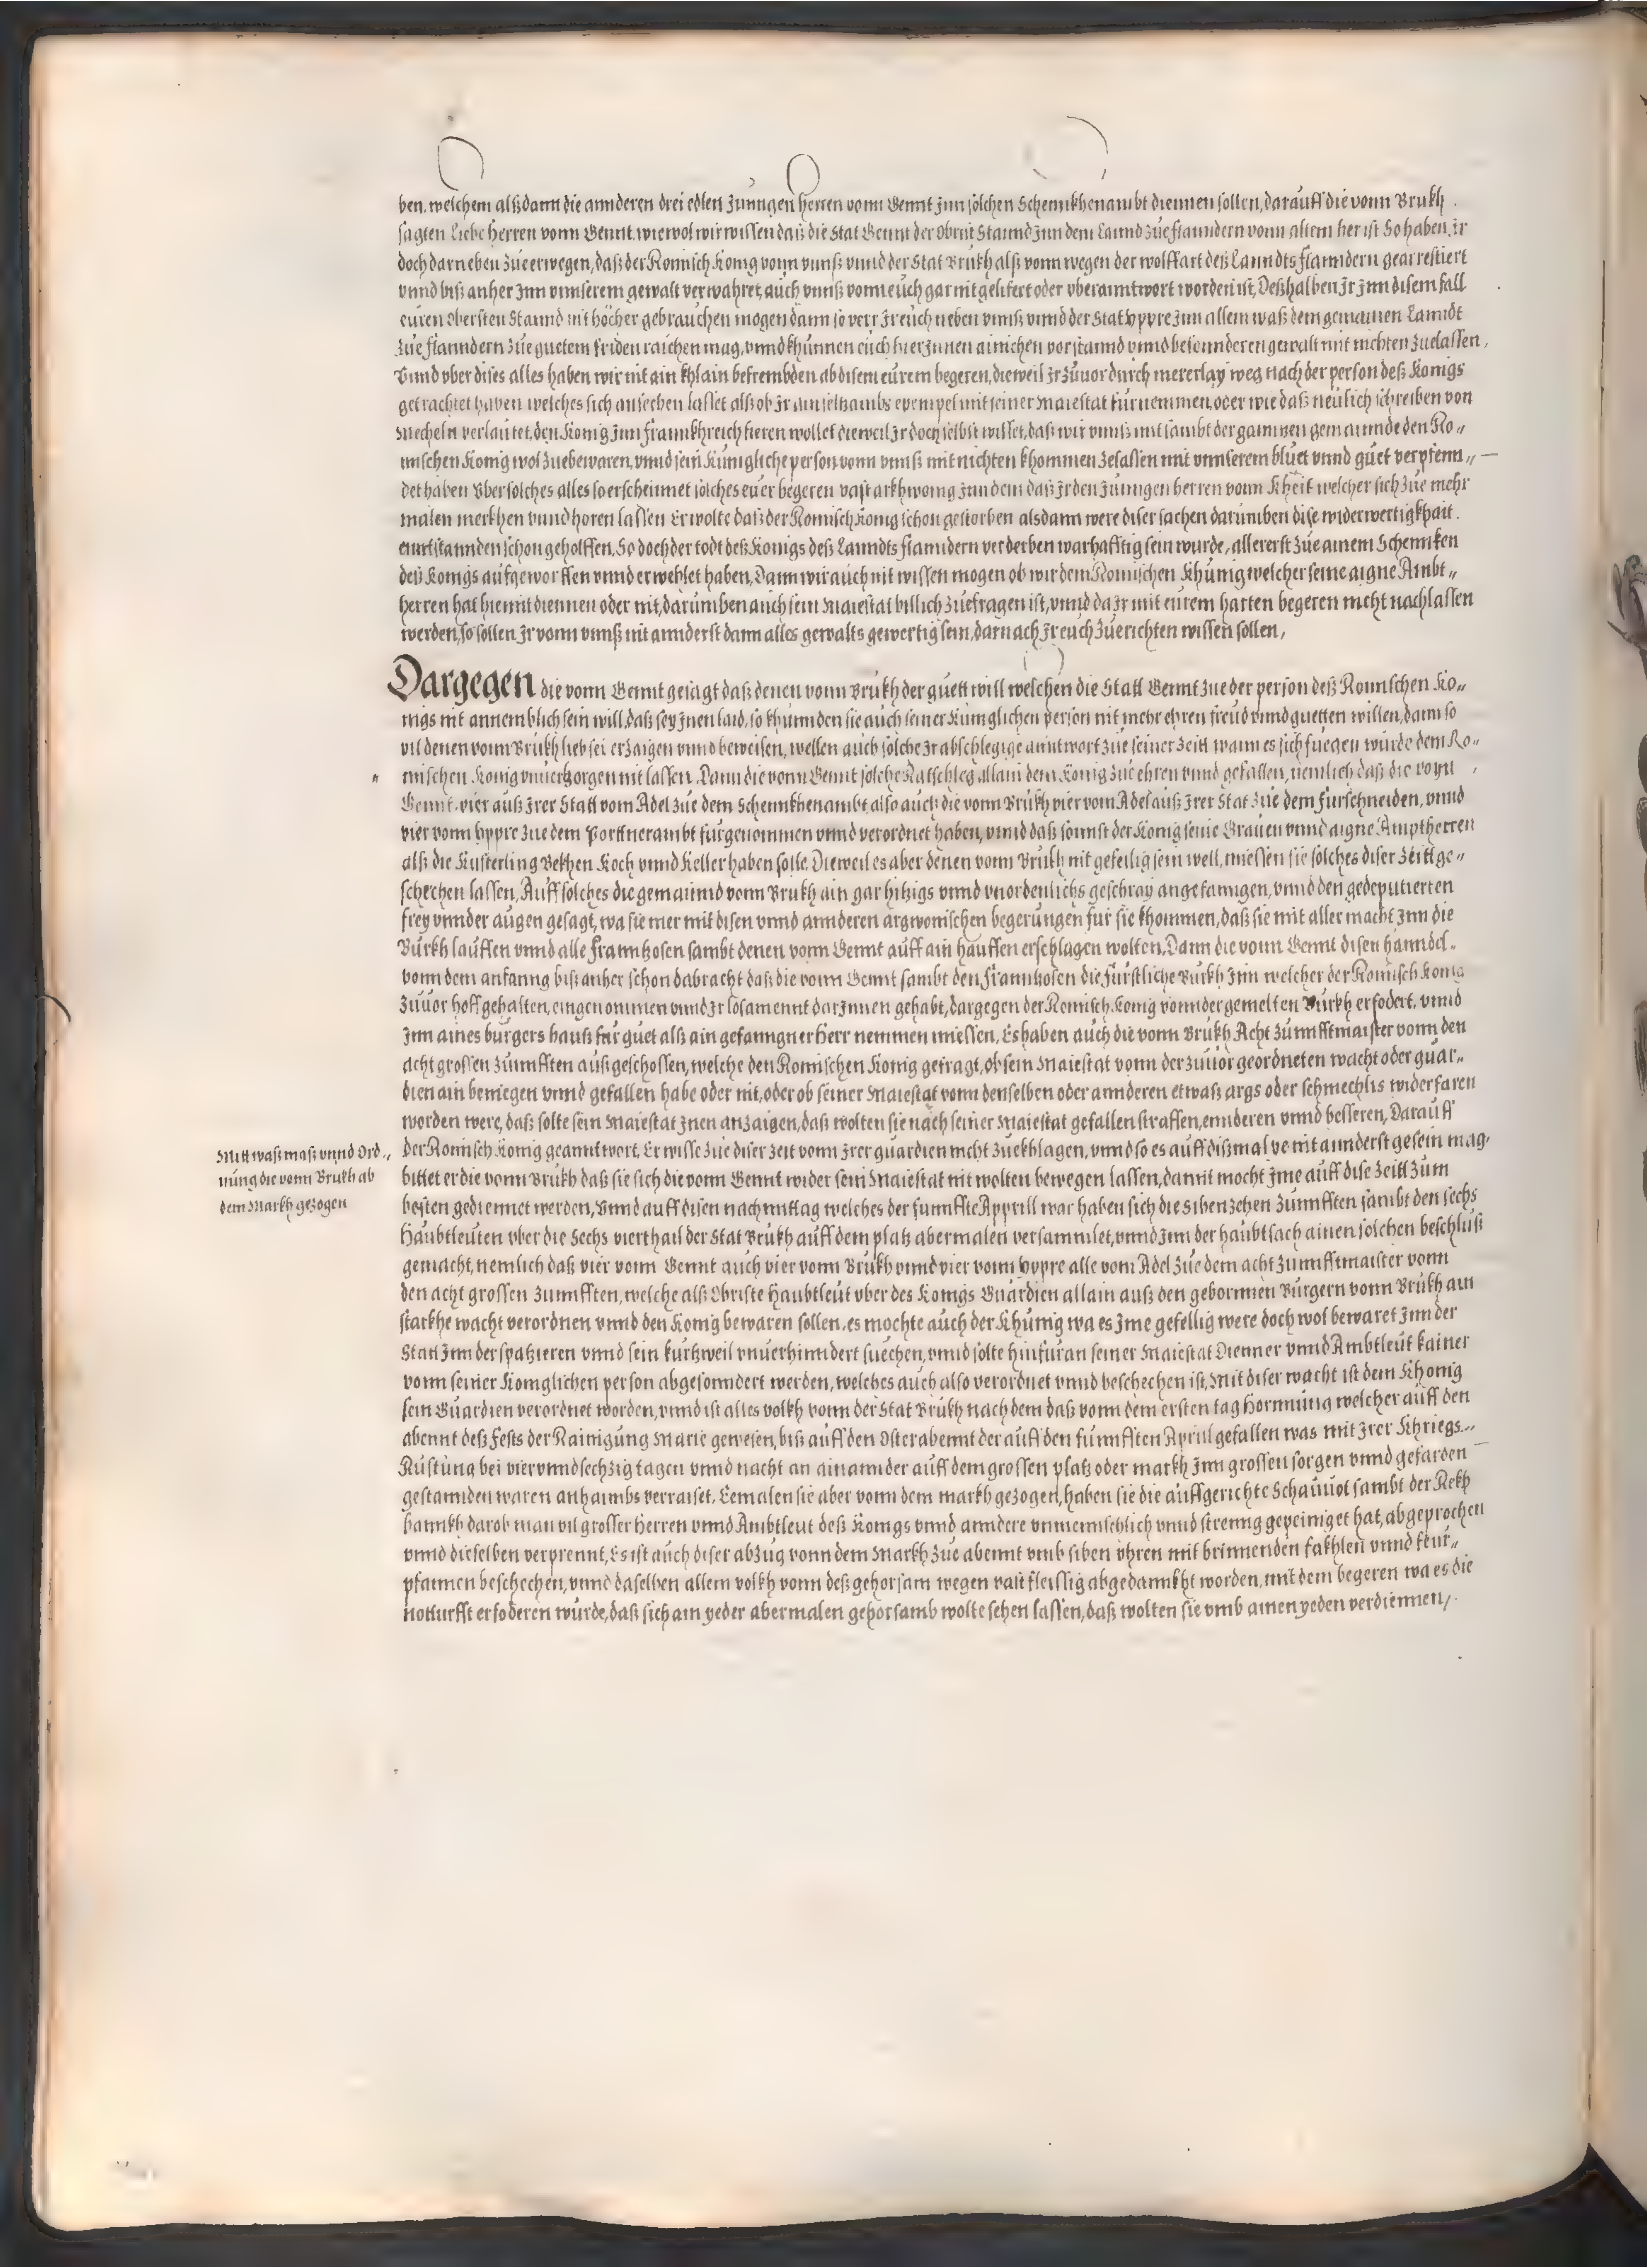 ben. welchem alßdann die annderen drei edlen Junngen herren vonn Gennt Jnn solchen Schennkhenambt diennen sollen, darauff die vonn Brukh
sagten Liebe Herren vonn Gennt. wiewol wir wissen daß die Stat Gennt der Obrist Stannd Jnn dem Lannd zue flanndern vonn altem her ist So haben ir
doch darneben zue erwegen, daß der Romisch Konig vonn vnnß vnnd der Stat Brukh alß vonn wegen der wolffart deß Lanndts flanndern gearrestiert
vnnd biß anher Jnn vnnserem gewalt verwahret, auch vnnß vonn euch gar nit gelifert oder vberanntwort worden ist, Deßhalben Jr Jnn disem fall
euren Obersten Stannd nit höcher gebrauchen mogen dann so verr Jr euch neben vnnß vnnd der Stat Yppre Jnn allem waß dem gemainen Lanndt
zue flanndern zue guetem friden raichen mag, vnnd khunnen euch hierJnnen ainichen vorstannd vnnd besonnderen gewalt mit nichten zuelassen,
Vnnd vber dises alles haben wir nit ain khlain befrembden ab disem eurem begeren, dieweil Jr zuuor durch mererlay weg nach der person deß Konigs
getrachtet haben welches sich ansechen lasset alß ob Jr ain seltzambs exempel mit seiner Maiestat furnemmen, oder wie daß neulich schreiben von
Mecheln verlautet, den Konig Jnn Frannkhreich fieren wollet dieweil Jr doch selbst wisset, daß wir vnnß mit sambt der ganntzen gemainnde den Ro„
mischen Konig wol zuebewaren, vnnd sein Kunigliche person vonn vnnß mit nichten khommen zelassen mit vnnserem bluet vnnd guet verpfenn„
det haben Vber solches alles so erscheinnet solches euer begeren vast arkhwonig Jnn dem daß Jr den Junngen herren vonn Kheit welcher sich zue mehr
malen merkhen vnnd horen lassen Er wolte daß der Romisch Konig schon gestorben alsdann were diser sachen darumben dise widerwertigkhait
enntstannden schon geholffen, So doch der todt deß Konigs deß Lanndts flanndern verderben warhafftig sein wurde, allererst zue ainem Schennken
deß Konigs aufgeworffen vnnd erwehlet haben, Dann wir auch nit wissen mogen ob wir dem Romischen Khunig welcher seine aigne Ambt„
herren hat hiemit diennen oder nit, darumben auch sein Maiestat billich zuefragen ist, vnnd da Jr mit eurem harten begeren nicht nachlassen
werden, so sollen Jr vonn vnnß nit annderst dann alles gewalts gewertig sein, darnach Jr euch zuerichten wissen sollen,
Dargegen die vonn Gennt gesagt daß denen vonn Brukh der guett will welchen die Statt Gennt zue der person deß Romischen Ko„
nigs nit annemblich sein will, daß sey Jnen laid, so khunnden sie auch seiner Kuniglichen person nit mehr ehren freud vnnd guetten willen, dann so
vil denen vonn Brukh lieb sei erzaigen vnnd beweisen, wellen auch solche Jr abschlegige anntwort zue seiner zeitt wann es sich fuegen wurde dem Ro„
mischen Konig vnuerborgen nit lassen. Dann die vonn Gennt solche Ratschleg allain dem Konig zue ehren vnnd gefallen, nemlich daß die vonn
Gennt. vier auß Jrer Statt vom Adel zue dem Schennkhenambt also auch die vonn Brukh vier vom Adel auß Jrer Stat zue dem furschneiden, vnnd
vier vonn Yppre zue dem Portnerambt furgenommen vnnd verordnet haben, vnnd daß sonnst der Konig seine Grauen vnnd aigne Amptherren
alß die Kusterling Bekhen Koch vnnd Keller haben solle. Dieweil es aber denen vonn Brukh nit gefellig sein well, miessen sie solches diser Zeitt ge„
schechen lassen, Auff solches die gemainnd vonn Brukh ain gar hitzigs vnnd vnordenlichs geschray angefanngen, vnnd den gedeputierten
frey vnnder augen gesagt, wa sie mer mit disen vnnd annderen argwonischen begerungen fur sie khommen, daß sie mit aller macht Jnn die
Burkh lauffen vnnd alle Franntzosen sambt denen vonn Gennt auff ain hauffen erschlagen wolten, Dann die vonn Gennt disen hanndel
vonn dem anfanng biß anher schon dabracht daß die vonn Gennt sambt den Franntzosen die furstliche Burkh Jnn welcher der Romisch Konig
zuuor hoff gehalten, eingenommen vnnd Jr losament darJnnen gehabt, dargegen der Romisch Konig vonn der gemelten Burkh erfodert, vnnd
Jnn aines burgers hauß fur guet alß ain gefanngner herr nemmen miessen, Es haben auch die vonn Brukh Acht zunnfftmaister vonn den
acht grossen zunnfften außgeschossen, welche den Romischen Konig gefragt, ob sein Maiestat vonn der zuuor geordneten wacht oder guar„
dien ain beniegen vnnd gefallen habe oder nit, oder ob seiner Maiestat vonn denselben oder annderen etwaß args oder schmechlis widerfaren
worden were, daß solte sein Maiestat Jnen anzaigen, daß wolten sie nach seiner Maiestat gefallen straffen, ennderen vnnd besseren, Darauff
Mitt waß maß vnnd Ord„
nung die vonn Brukh ab
dem Markh gezogen
der Romisch Konig geanntwort. Er wisse zue diser zeit vonn Jrer guardien nicht zuekhlagen, vnnd so es auff dißmal ye nit annderst gesein mag,
bittet er die vonn Brukh daß sie sich die vonn Gennt wider sein Maiestat nit wolten bewegen lassen, damit mocht Jme auff dise Zeitt zum
besten gediennet werden, Vnnd auff disen nachmittag welches der funnffte Apprill war haben sich die Sibenzehen Zunnfften sambt den sechs
Haubtleuten vber die Sechs vierthail der Stat Brukh auff dem platz abermalen versammlet, vnnd Jnn der haubtsach ainen solchen beschluß
gemacht, nemlich daß vier vonn Gennt auch vier vonn Brukh vnnd vier vonn Yppre alle vom Adel zue dem acht zunnfftmaister vonn
den acht grossen Zunnfften, welche alß Obriste Haubtleut vber des Konigs Guardien allain auß den gebornnen Burgern vonn Brukh ain
starkhe wacht verordnen vnnd den Konig bewaren sollen, es mochte auch der Khunig wa es Jme gefellig were doch wol bewaret Jnn der
Statt Jnn der spatzieren vnnd sein kurtzweil vnuerhinndert suechen, vnnd solte hinfuran seiner Maiestat Dienner vnnd Ambtleut kainer
vonn seiner Koniglichen person abgesonndert werden, welches auch also verordnet vnnd beschechen ist, Mit diser wacht ist dem Khonig
sein Guardien verordnet worden, vnnd ist alles volkh vonn der Stat Brukh nach dem daß vonn dem ersten tag Hornnung welcher auff den
abennt deß Fests der Rainigung Marie gewesen, biß auff den Osterabennt der auff den funnfften April gefallen was mit Jrer Khriegs„
Rustung bei viervnndsechzig tagen vnnd nacht an ainannder auff dem grossen platz oder markh Jnn grossen sorgen vnnd gefarden
gestannden waren anhaimbs verraiset, Eemalen sie aber vonn dem markh gezogen, haben sie die auffgerichte Schauuot sambt der Rekh
bannkh darob man vil grosser Herren vnnd Ambtleut deß Konigs vnnd anndere vnmennschlich vnnd strenng gepeiniget hat, abgeprochen
vnnd dieselben verprennt, Es ist auch diser abzug vonn dem Markh zue abennt vmb siben vhren mit brinnenden fakhlen vnnd feur„
pfannen beschechen, vnnd daselben allem volkh vonn deß gehorsam wegen vast fleissig abgedannkht worden, mit dem begeren wa es die
notturfft erfoderen wurde, daß sich ain yeder abermalen gehorsamb wolte sehen lassen, daß wolten sie vmb ainen yeden verdiennen,